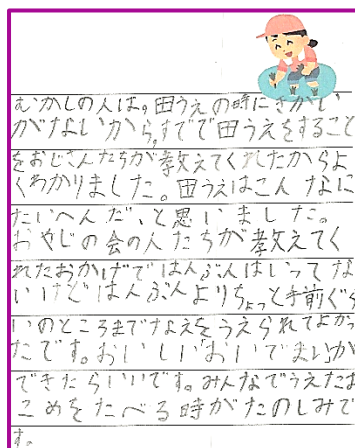 むかしの人は。田うえの時にきかい
がないから、すでで田うえをすること
をおじさんたちが教えてくれたからよ
くわかりました。田うえはこんなに
たいへんだ、と思いました。
おやじの会の人たちが教えてく
れたおかげではんぶんはいってな
いけどはんぶんよりちょっと手前ぐら
いのところまでなえをうえられてよかっ
たです。おいしい「おいでまい」が
できたらいいです。みんなでうえたお
こめをたべる時がたのしみで
す。